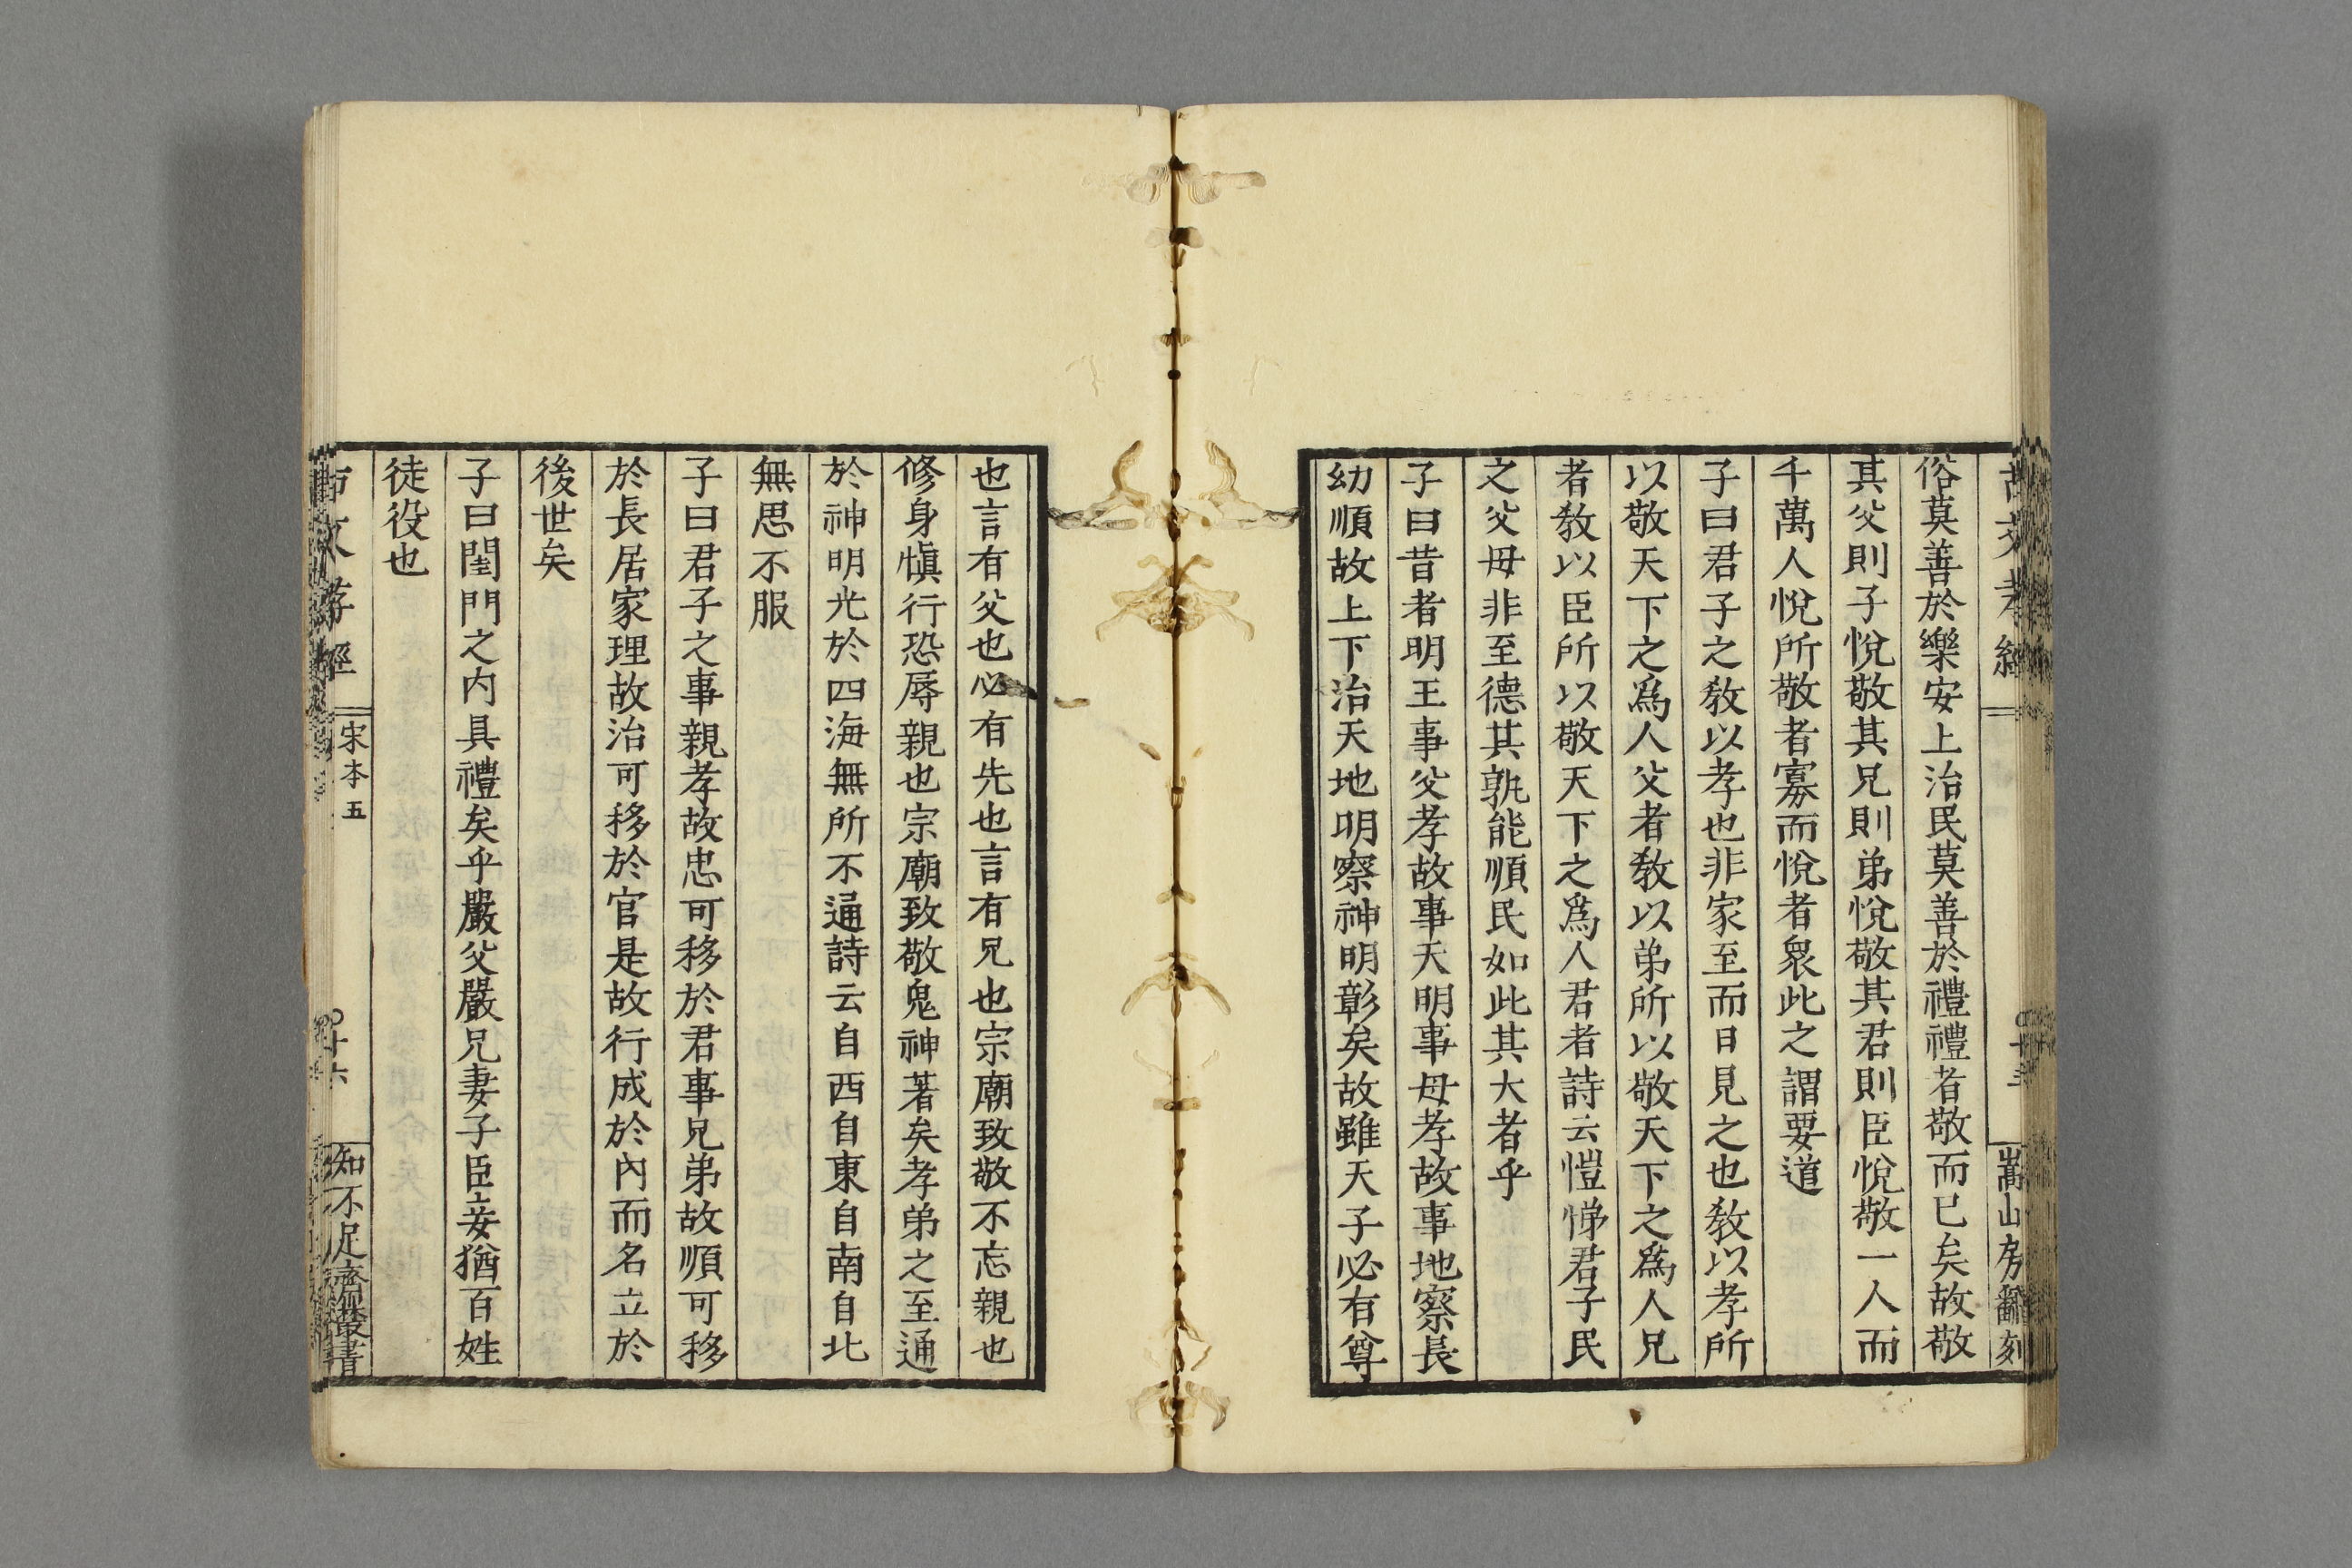 古文孝經
嵩山房翻刻
俗莫善於樂安上治民莫善於禮禮者敬而已矣故敬
其父則子悅敬其兄則弟悅敬其君則臣悅敬一人而
千萬人悅所敬者寡而悅者衆此之謂要道
子曰君子之教以孝也非家至而日見之也教以孝所
以敬天下之爲人父者教以弟所以敬天下之爲人兄
者教以臣所以敬天下之爲人君者詩云愷悌君子民
之父母非至德其孰能順民如此其大者乎
子曰昔者明王事父孝故事天明事母孝故事地察長
幼順故上下治天地明察神明彰矣故雖天子必有尊
也言有父也必有先也言有兄也宗廟致敬不忘親也
修身愼行恐辱親也宗廟致敬鬼神著矣孝弟之至通
於神明光於四海無所不通詩云自西自東自南自北
無思不服
子曰君子之事親孝故忠可移於君事兄弟故順可移
於長居家理故治可移於官是故行成於內而名立於
後世矣
子曰閨門之內具禮矣乎嚴父嚴兄妻子臣妾猶百姓
徒役也
古文孝經
宋本五
十六
知不足齋叢書